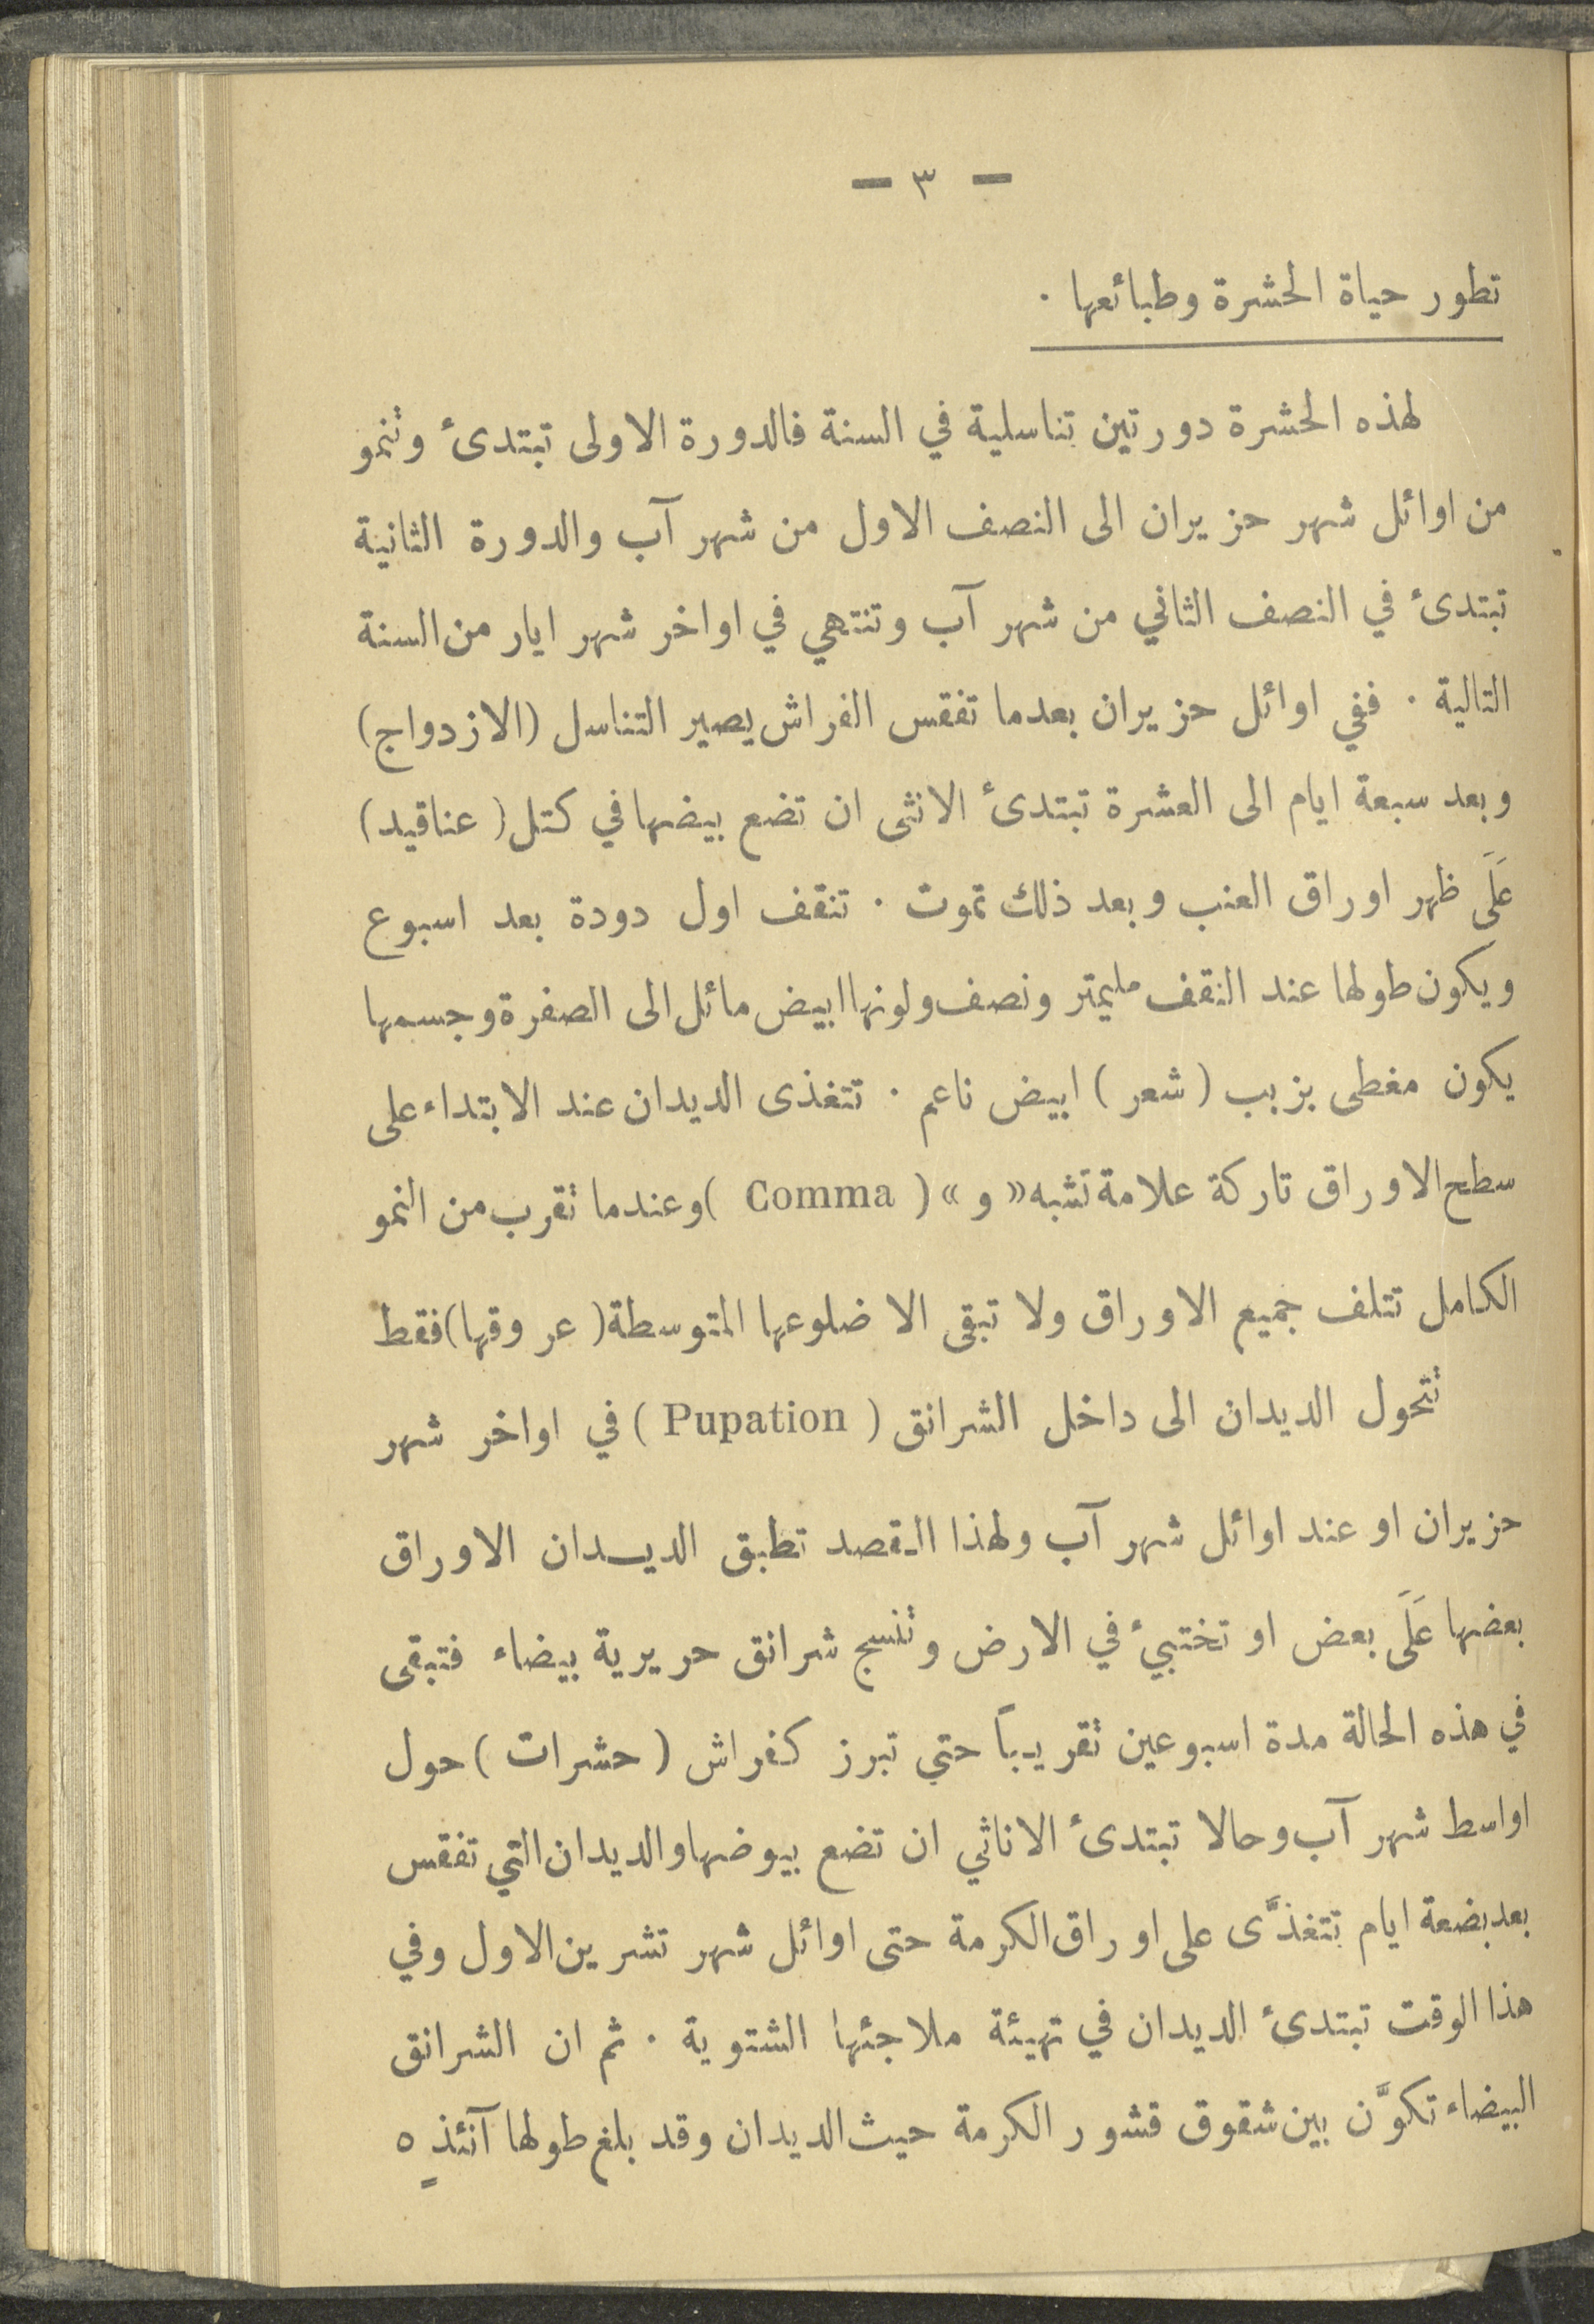 — ٣ —
تطور حياة الحشرة وطبائعها ·
لهذه الحشرة دورتين تناسلية في السنة فالدورة الاولى تبتدئ وتنمو
من اوائل شهر حزيران الى النصف الاول من شهر آب والدورة الثانية
تبتدئ في النصف الثاني من شهر آب وتنتهي في اواخر شهر ايار من السنة
التالية · ففي اوائل حزيران بعدما تفقس الفراش يصير التناسل (الازدواج)
وبعد سبعة ايام الى العشرة تبتدئ الانثى ان تضع بيضها في كتل (عناقيد)
عَلَى ظهر اوراق العنب وبعد ذلك تموت · تنقف اول دودة بعد اسبوع
ويكون طولها عند النقف مليمتر ونصف ولونها ابيض مائل الى الصفرة وجسمها
يكون مغطى بزبب (شعر) ابيض ناعم · تتغذى الديدان عند الابتداء على
سطح الاوراق تاركة علامة تشبه « و » ( Comma ) وعندما تقرب من النمو
الكامل تتلف جميع الاوراق ولا تبقى الا ضلوعها المتوسطة (عروقها) فقط
تتحول الديدان الى داخل الشرانق ( Pupation ) في اواخر شهر
حزيران او عند اوائل شهر آب ولهذا القصد تطبق الديدان الاوراق
بعضها عَلَى بعض او تختبيء في الارض وتنسج شرانق حريرية بيضاء فتبقى
في هذه الحالة مدة اسبوعين تقريباً حتي تبرز كفراش (حشرات) حول
اواسط شهر آب وحالا تبتدئ الاناثي ان تضع بيوضها والديدان التي تفقس
بعد بضعة ايام تتغذَّى على اوراق الكرمة حتى اوائل شهر تشرين الاول وفي
هذا الوقت تبتدئ الديدان في تهيئة ملاجئها الشتوية · ثم ان الشرانق
البيضاء تكوَّن بين شقوق قشور الكرمة حيث الديدان وقد بلغ طولها آنئذٍ ٥